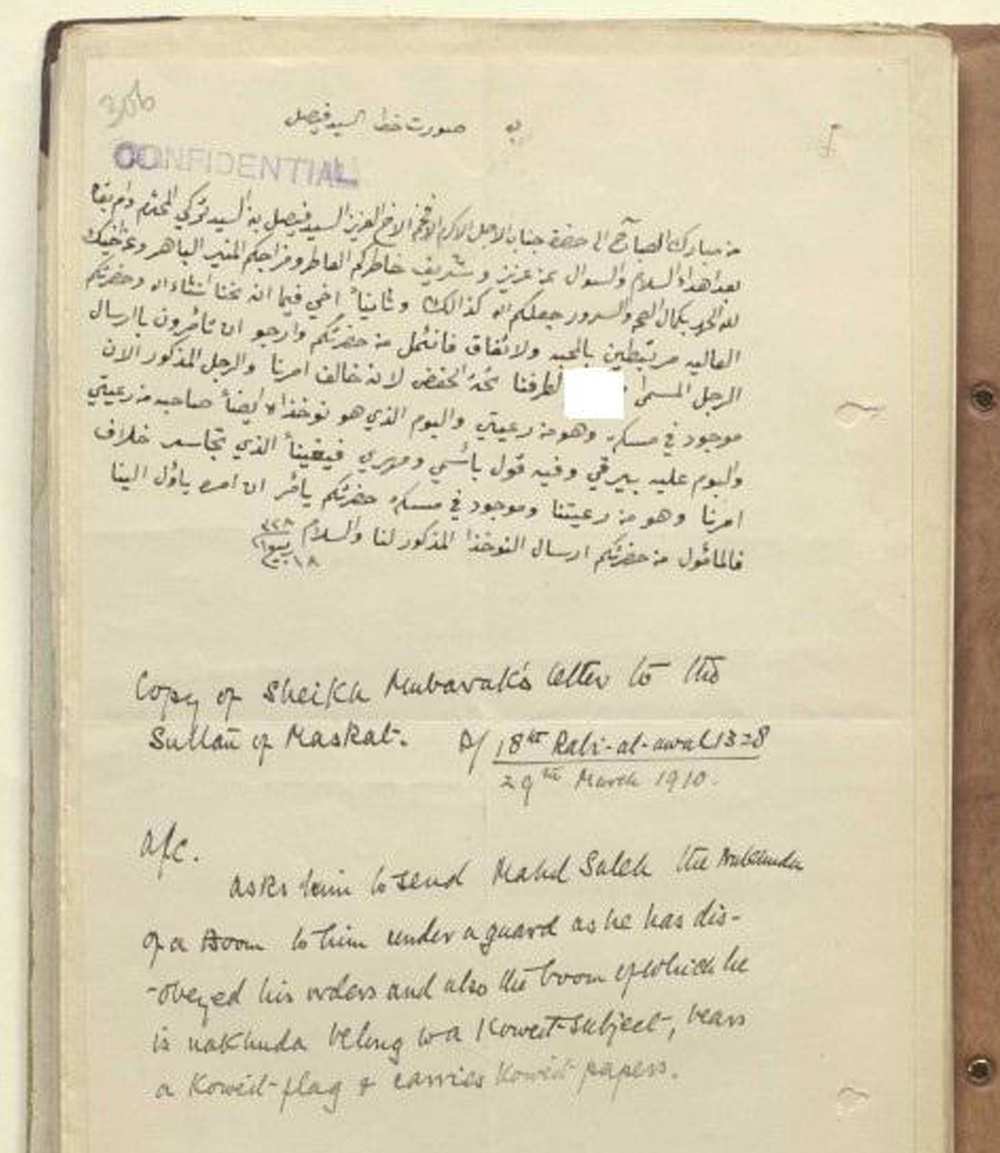 306
صورت خط السيد فيصل
CONFIDENTIAL
من مبارك الصباح الى حضرة جناب الاجل الاكرم الافخم الاخ العزيز السيد فيصل بن السيد تركي المحترم دام بقاه
بعد اهداء السلام والسوال عن عزيز وشريف خاطركم العاطر ومزاجكم المنير الباهر وعن اخيك
لله الحمد بكمال الصحه والسرور جعلكم الله كذالك وثانياً اخي فيما ان نحنا انشاءالله وحضرتكم
العاليه مرتبطين بالمحبه والاتفاق فانئمل من حضرتكم وارجو ان تائمرون باارسال
الرجل المسما لطرفنا تحت الحفض لانه خالف امرنا والرجل المذكور الان
موجود في مسكد وهو من رعيتي والبوم الذي هو نوخذاه ايضاً صاحبه من رعيتي
والبوم عليه بيرقي وفيه قول باسمي ومهري فيقيناً الذي تجاسر خلاف
امرنا وهو من رعيتنا وموجود في مسكد حضرتكم يائمر ان امره ياؤل الينا
فالمائمول من حضرتكم ارسال النوخذا المذكور لنا والسلام
١٨ ربيع ١ ٣٢٨
Copy of Sheikh Mubarak's letter to the
Sultan of Maskat. D/ 18th Rabi-al-awal 1328
29th March 1910.
a/c.
asks him to send Mahd Saleh the Nakhuda
of a Boom to him under a guard as he has dis-
-obeyed his orders and also the boom of which he
is nakhuda belong to a Koweit-subject, bears
a Koweit-flag & carries Koweit papers.